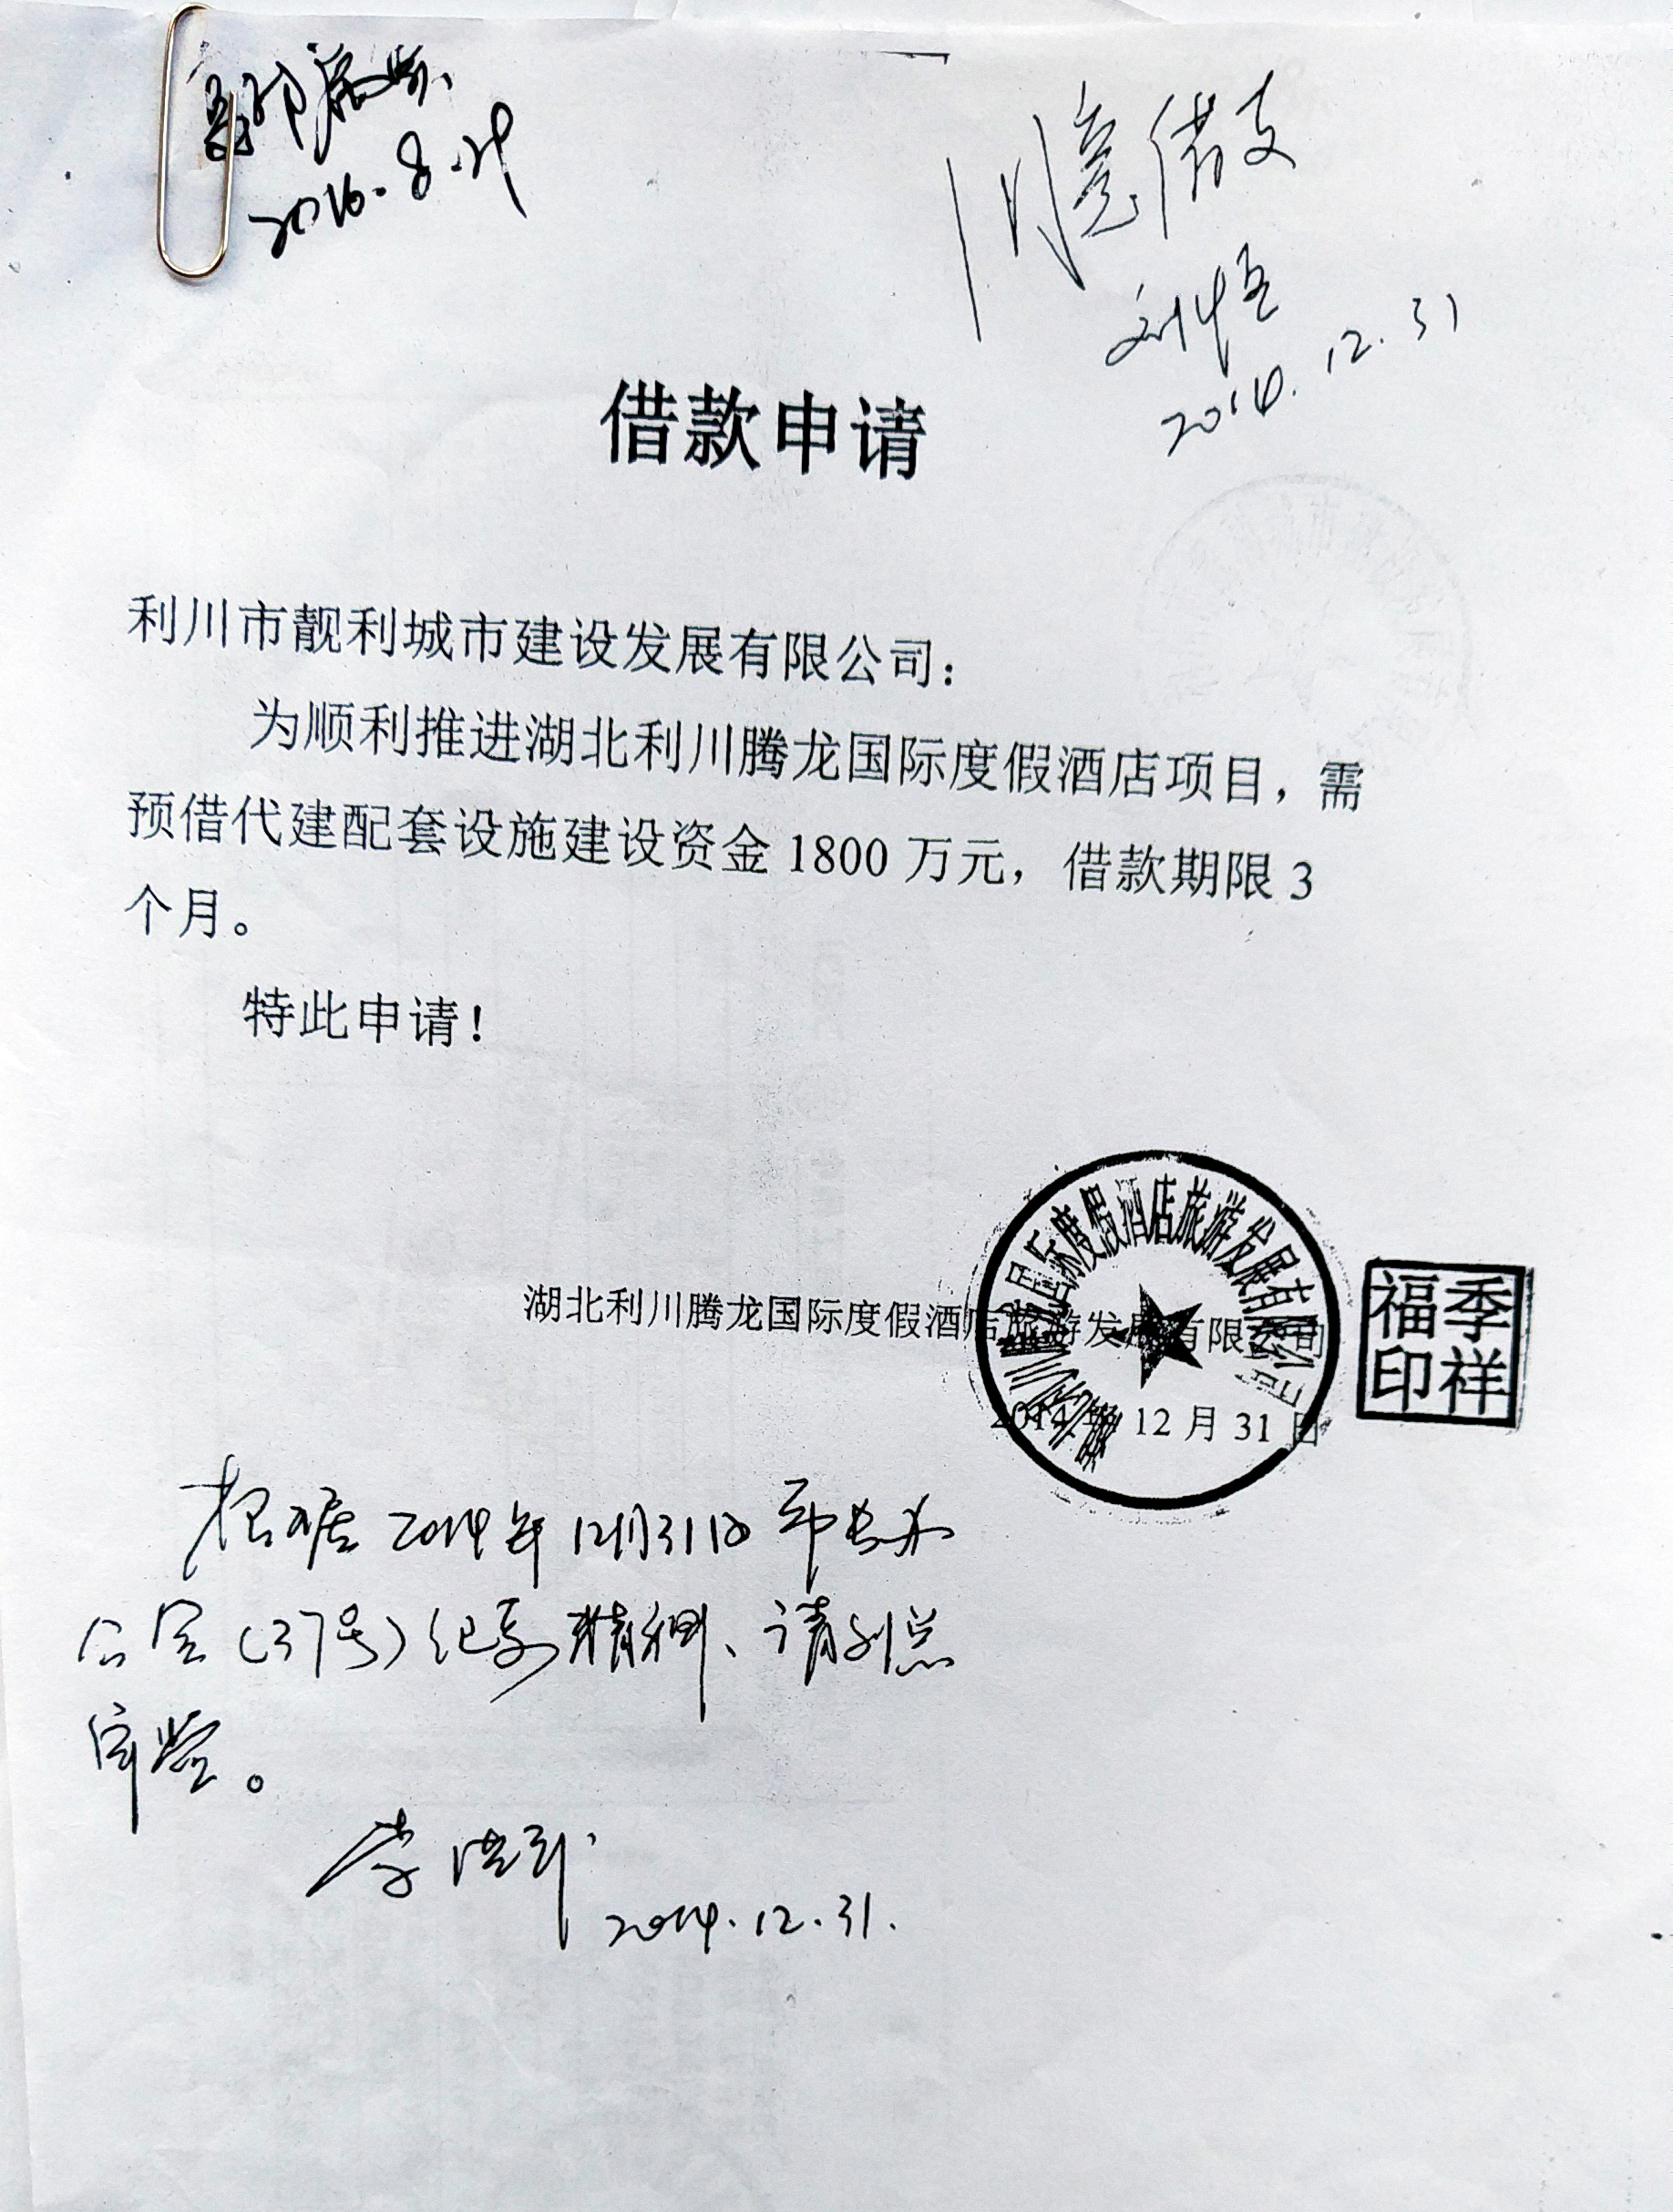 2016.8.29
同意借支
2014.12.31
借款申请
利川市靓利城市建设发展有限公司：
为顺利推进湖北利川腾龙国际度假酒店项目，需
预借代建配套设施建设资金1800万元，借款期限3
个月。
特此申请！
湖北利川腾龙国际度假酒店旅游发展有限公司
2014年12月31日
湖北利川腾龙国际度假酒店旅游发展有限公司
季祥
福印
根据2014年12月31日市长办
公室（37号）纪要精神、请刘总
审签。
2014.12.31.